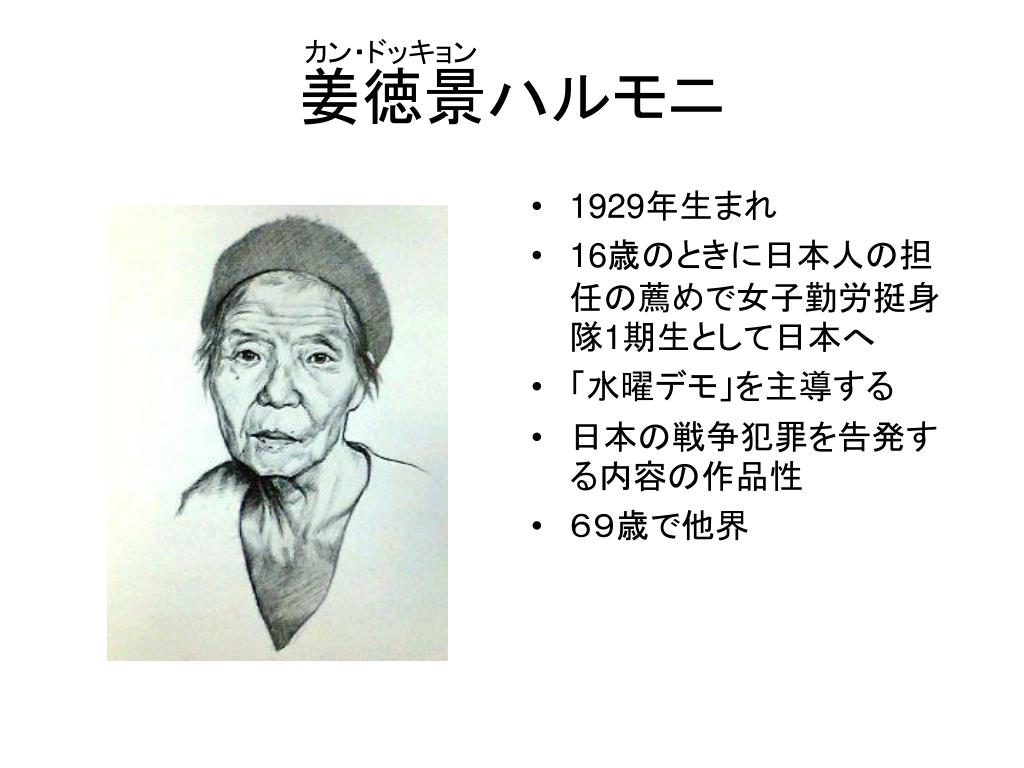 カン・ドッキョン
姜徳景ハルモニ
• 1929年生まれ
• 16歳のときに日本人の担
任の薦めで女子勤労挺身
隊1期生として日本へ
• 「水曜デモ」を主導する
• 日本の戦争犯罪を告発す
る内容の作品性
• ６９歳で他界